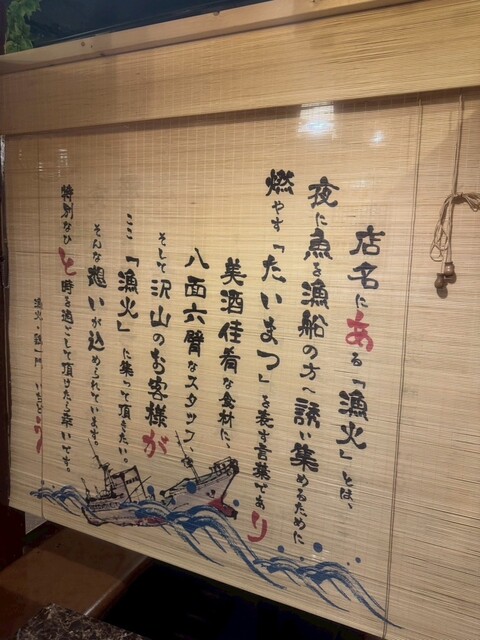 店名にある「漁火」とは、
夜に魚を漁船の方へ誘い集めるために
燃やす「たいまつ」を表す言葉であり
美酒佳肴な食材に、
八面六臂なスタッフ、
そして沢山のお客様が
ここ「漁火」に集って頂きたい。
そんな想いが込められています。
特別なひと時を過ごして頂けたら幸いです。
漁火・鶏一門 いちどり